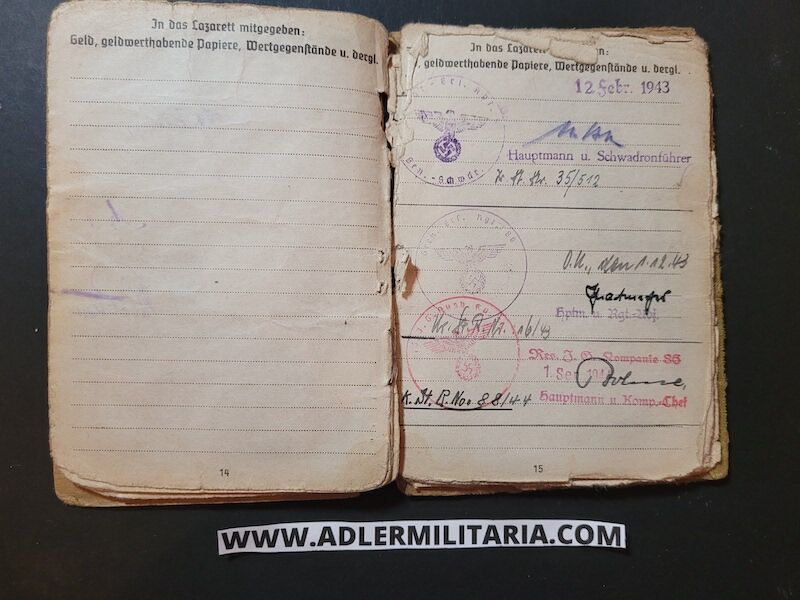 In das Lazarett mitgegeben:
Geld, geldwerthabende Papiere, Wertgegenstände u. dergl.
14
In das Lazarett
geldwerthabende Papiere, Wertgegenstände u. dergl.
12. Febr. 1943
Hauptmann u. Schwadronführer
35/512
O.U., den 1.12.43
Hptm. u. Rgt.-Adj.
Kr. St. R. Nr. 16/43
Res. J. G. Kompanie 86
1. Sep. 194
Hauptmann u. Komp.-Chef
K. St. R. No. 88/44
15
WWW.ADLERMILITARIA.COM